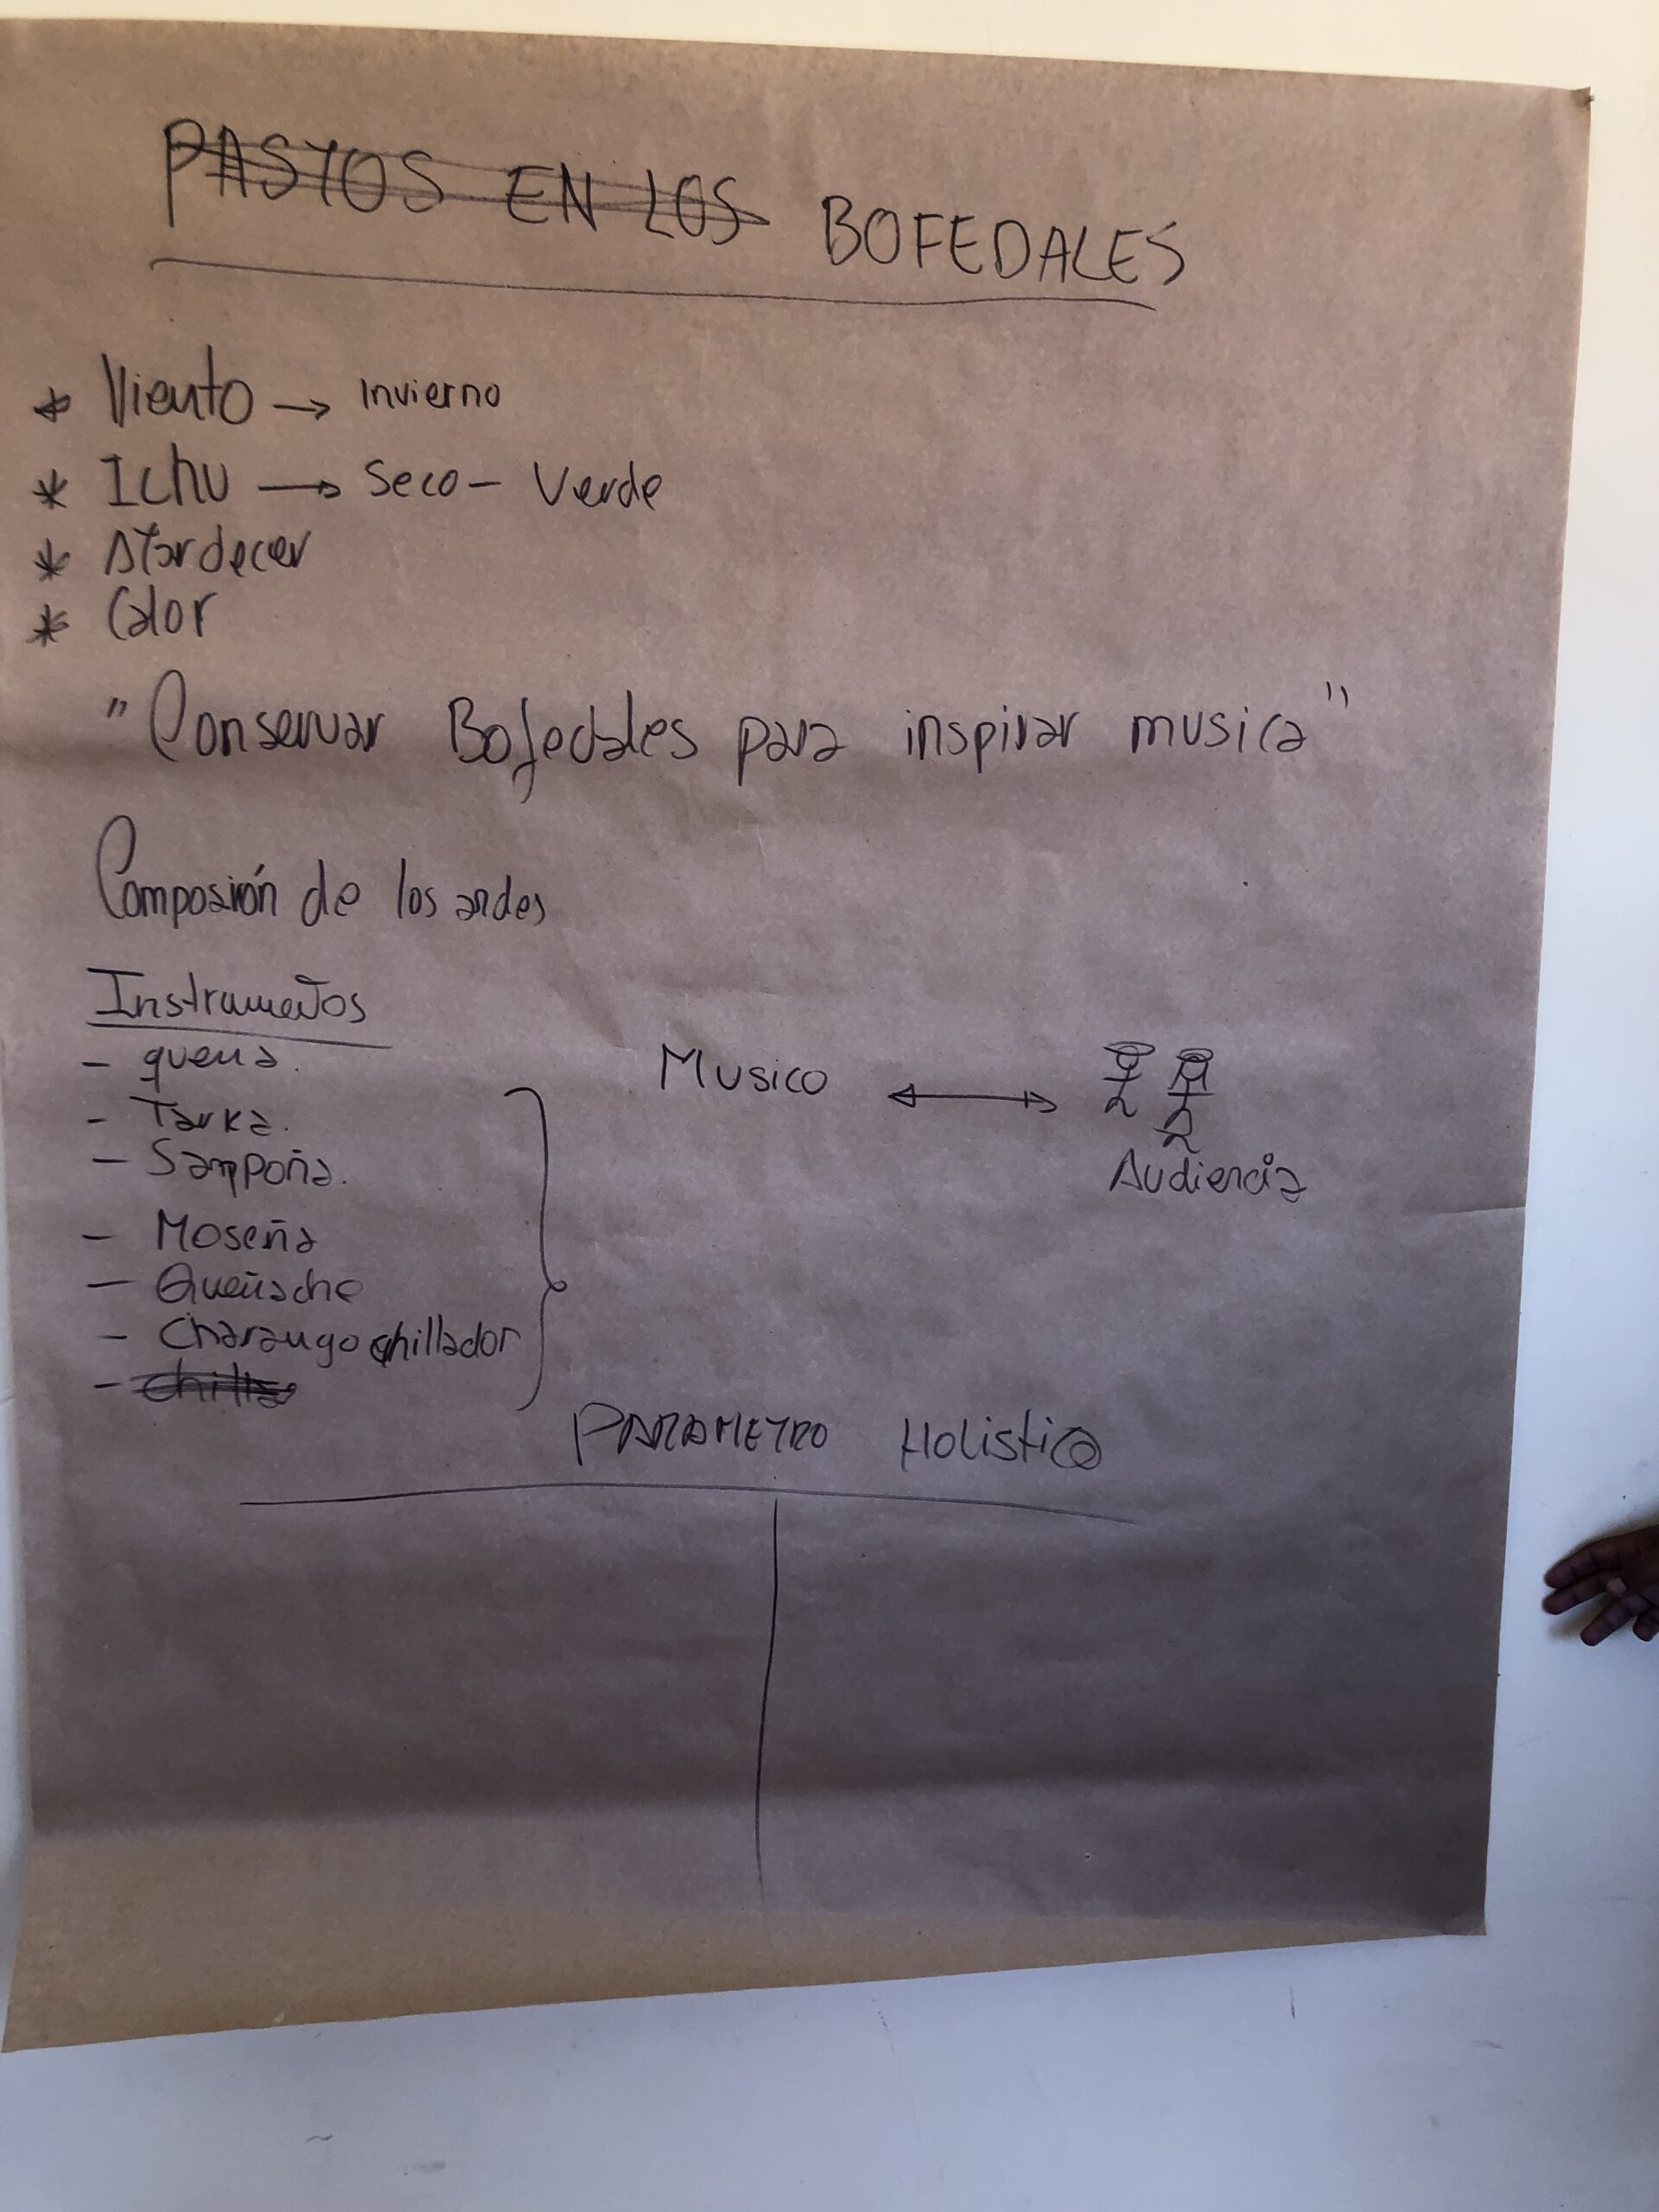 PASTOS EN LOS BOFEDALES
* Viento → Invierno
* Ichu → Seco - Verde
* Atardecer
* Calor
"Conservar Bofedales para inspirar musica"
Composición de los andes
Instrumentos
- quena.
- Tarka.
- Sampoña.
- Moseña
- Queñache
- Charango chillador
- chilla
Musico ↔
Audiencia
PARAMETRO Holistico